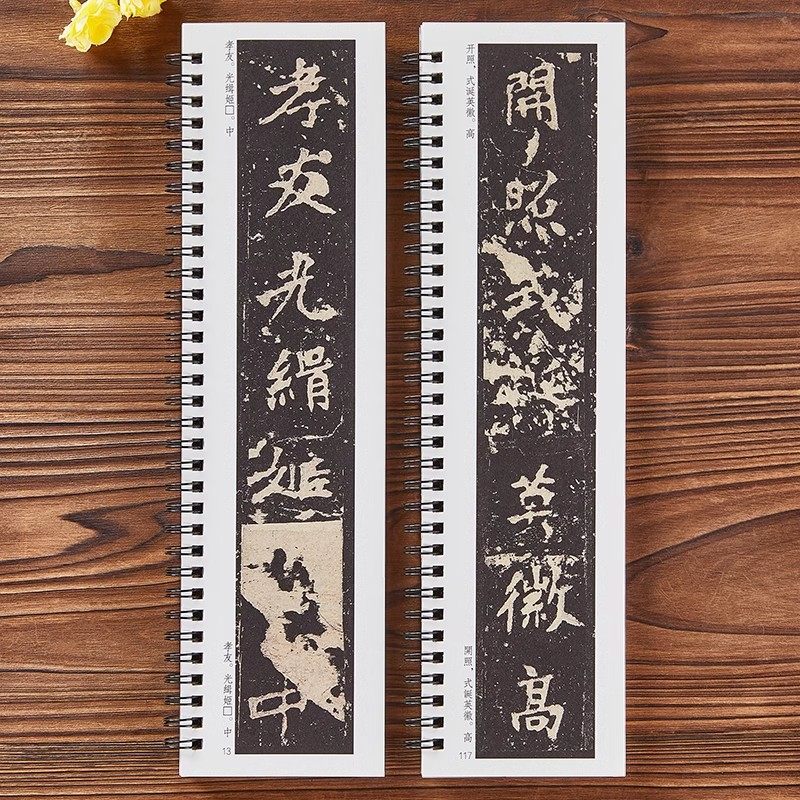 孝友。光缉姬□。中
孝友光緝姬
中
孝友。光緝姬□。中
13
开照，式诞英徽。高
開照式誕英徽高
開照，式誕英徽。高
117